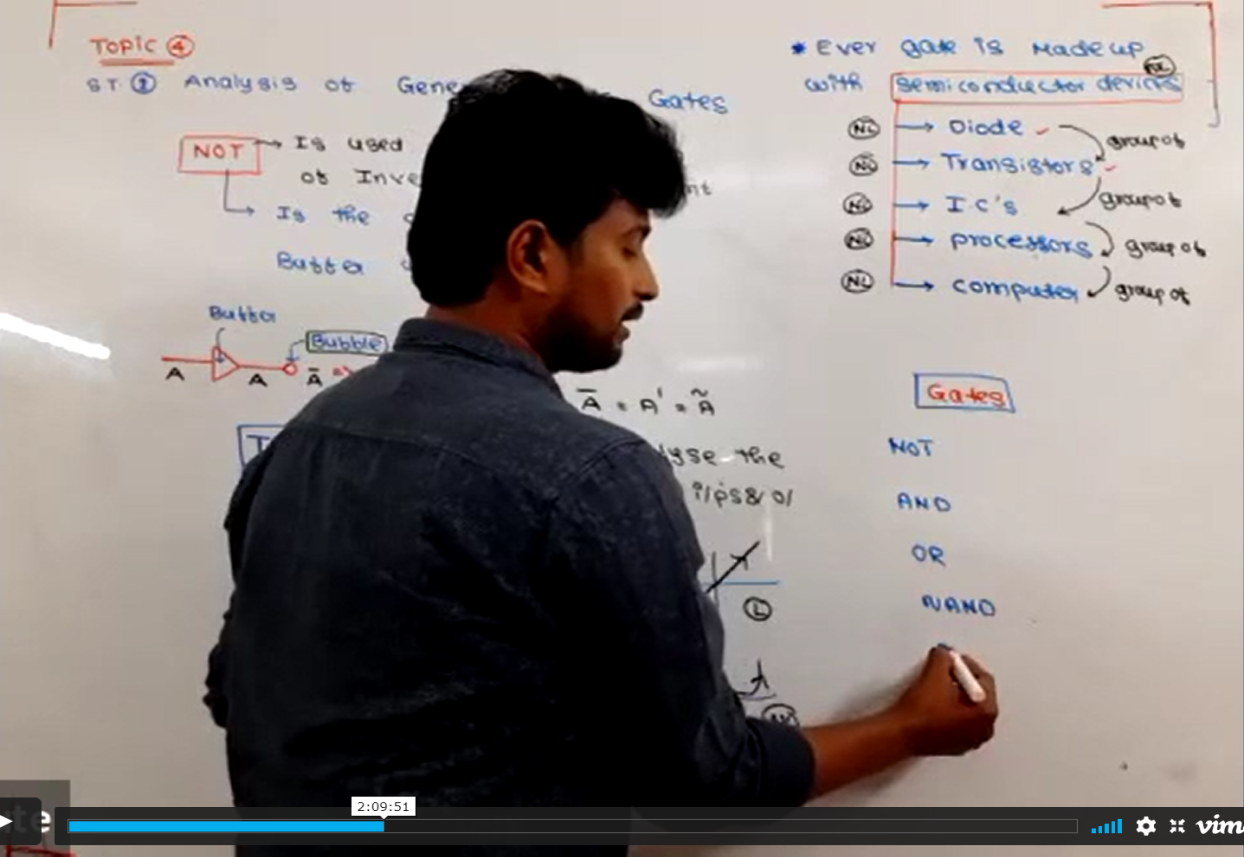 TOPIC ④
ST ② Analysis of Gene
Gates
NOT → Is used
of Inve
nt
→ Is the
Buffer
Buffer
Bubble
A
A
Ā
Ā = A' = Ã
lyse the
i/ps & o/
L
* Ever gate is Made up
with semiconductor devices
NL
NL → Diode
group of
NL → Transistors
group of
NL → I.C's
group of
NL → processors
group of
NL → computer
Gates
NOT
AND
OR
NAND
2:09:51
vim
te